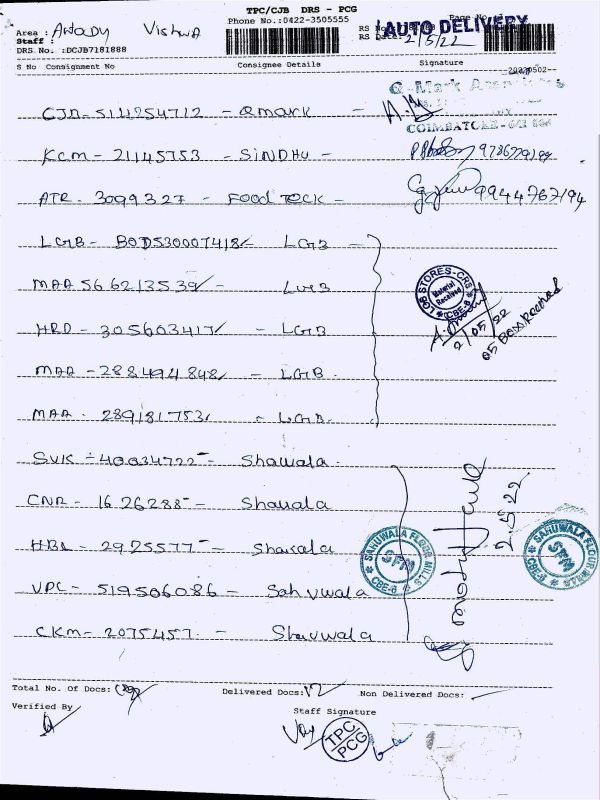 TPC/CJB DRS - PCG
Phone No.:0422-3505555
AUTO DELIVERY
Area : AWADY Vishwa
Staff :
RS No
RS Date: 2/5/22
DRS. No. :DCJB7181888
S No Consignment No Consignee Details Signature
Q-Mark
CJB - 514254712 - Qmark -
COIMBATORE
KCM - 21145753 - SINDHU -
ATR - 3099327 - FOOD TECK - 9944767194
LGB - BOD530007418/- LGB -
MAA 566213539/- LGB
LGB STORES-CRS
Material Received
CBE-6
2/05/22
05 Box Received
HRD - 305603417/ - LGB
MAA - 288494848/ - LGB
MAA - 289181753/ - LGB
SVK - 40034722 - Shawala
CNR - 1626288 - Shawala
2.5.22
HBL - 2925577 - Shawala
SAHUWALA FLOUR MILLS
SFM
CBE-6
SAHUWALA FLOUR MILLS
SFM
CBE-6
VPC - 519506086 - Sahvwala
CKM - 2075457 - Shavwala
Total No. Of Docs: Delivered Docs: 12 Non Delivered Docs:
Verified By
Staff Signature
TPC
PCG